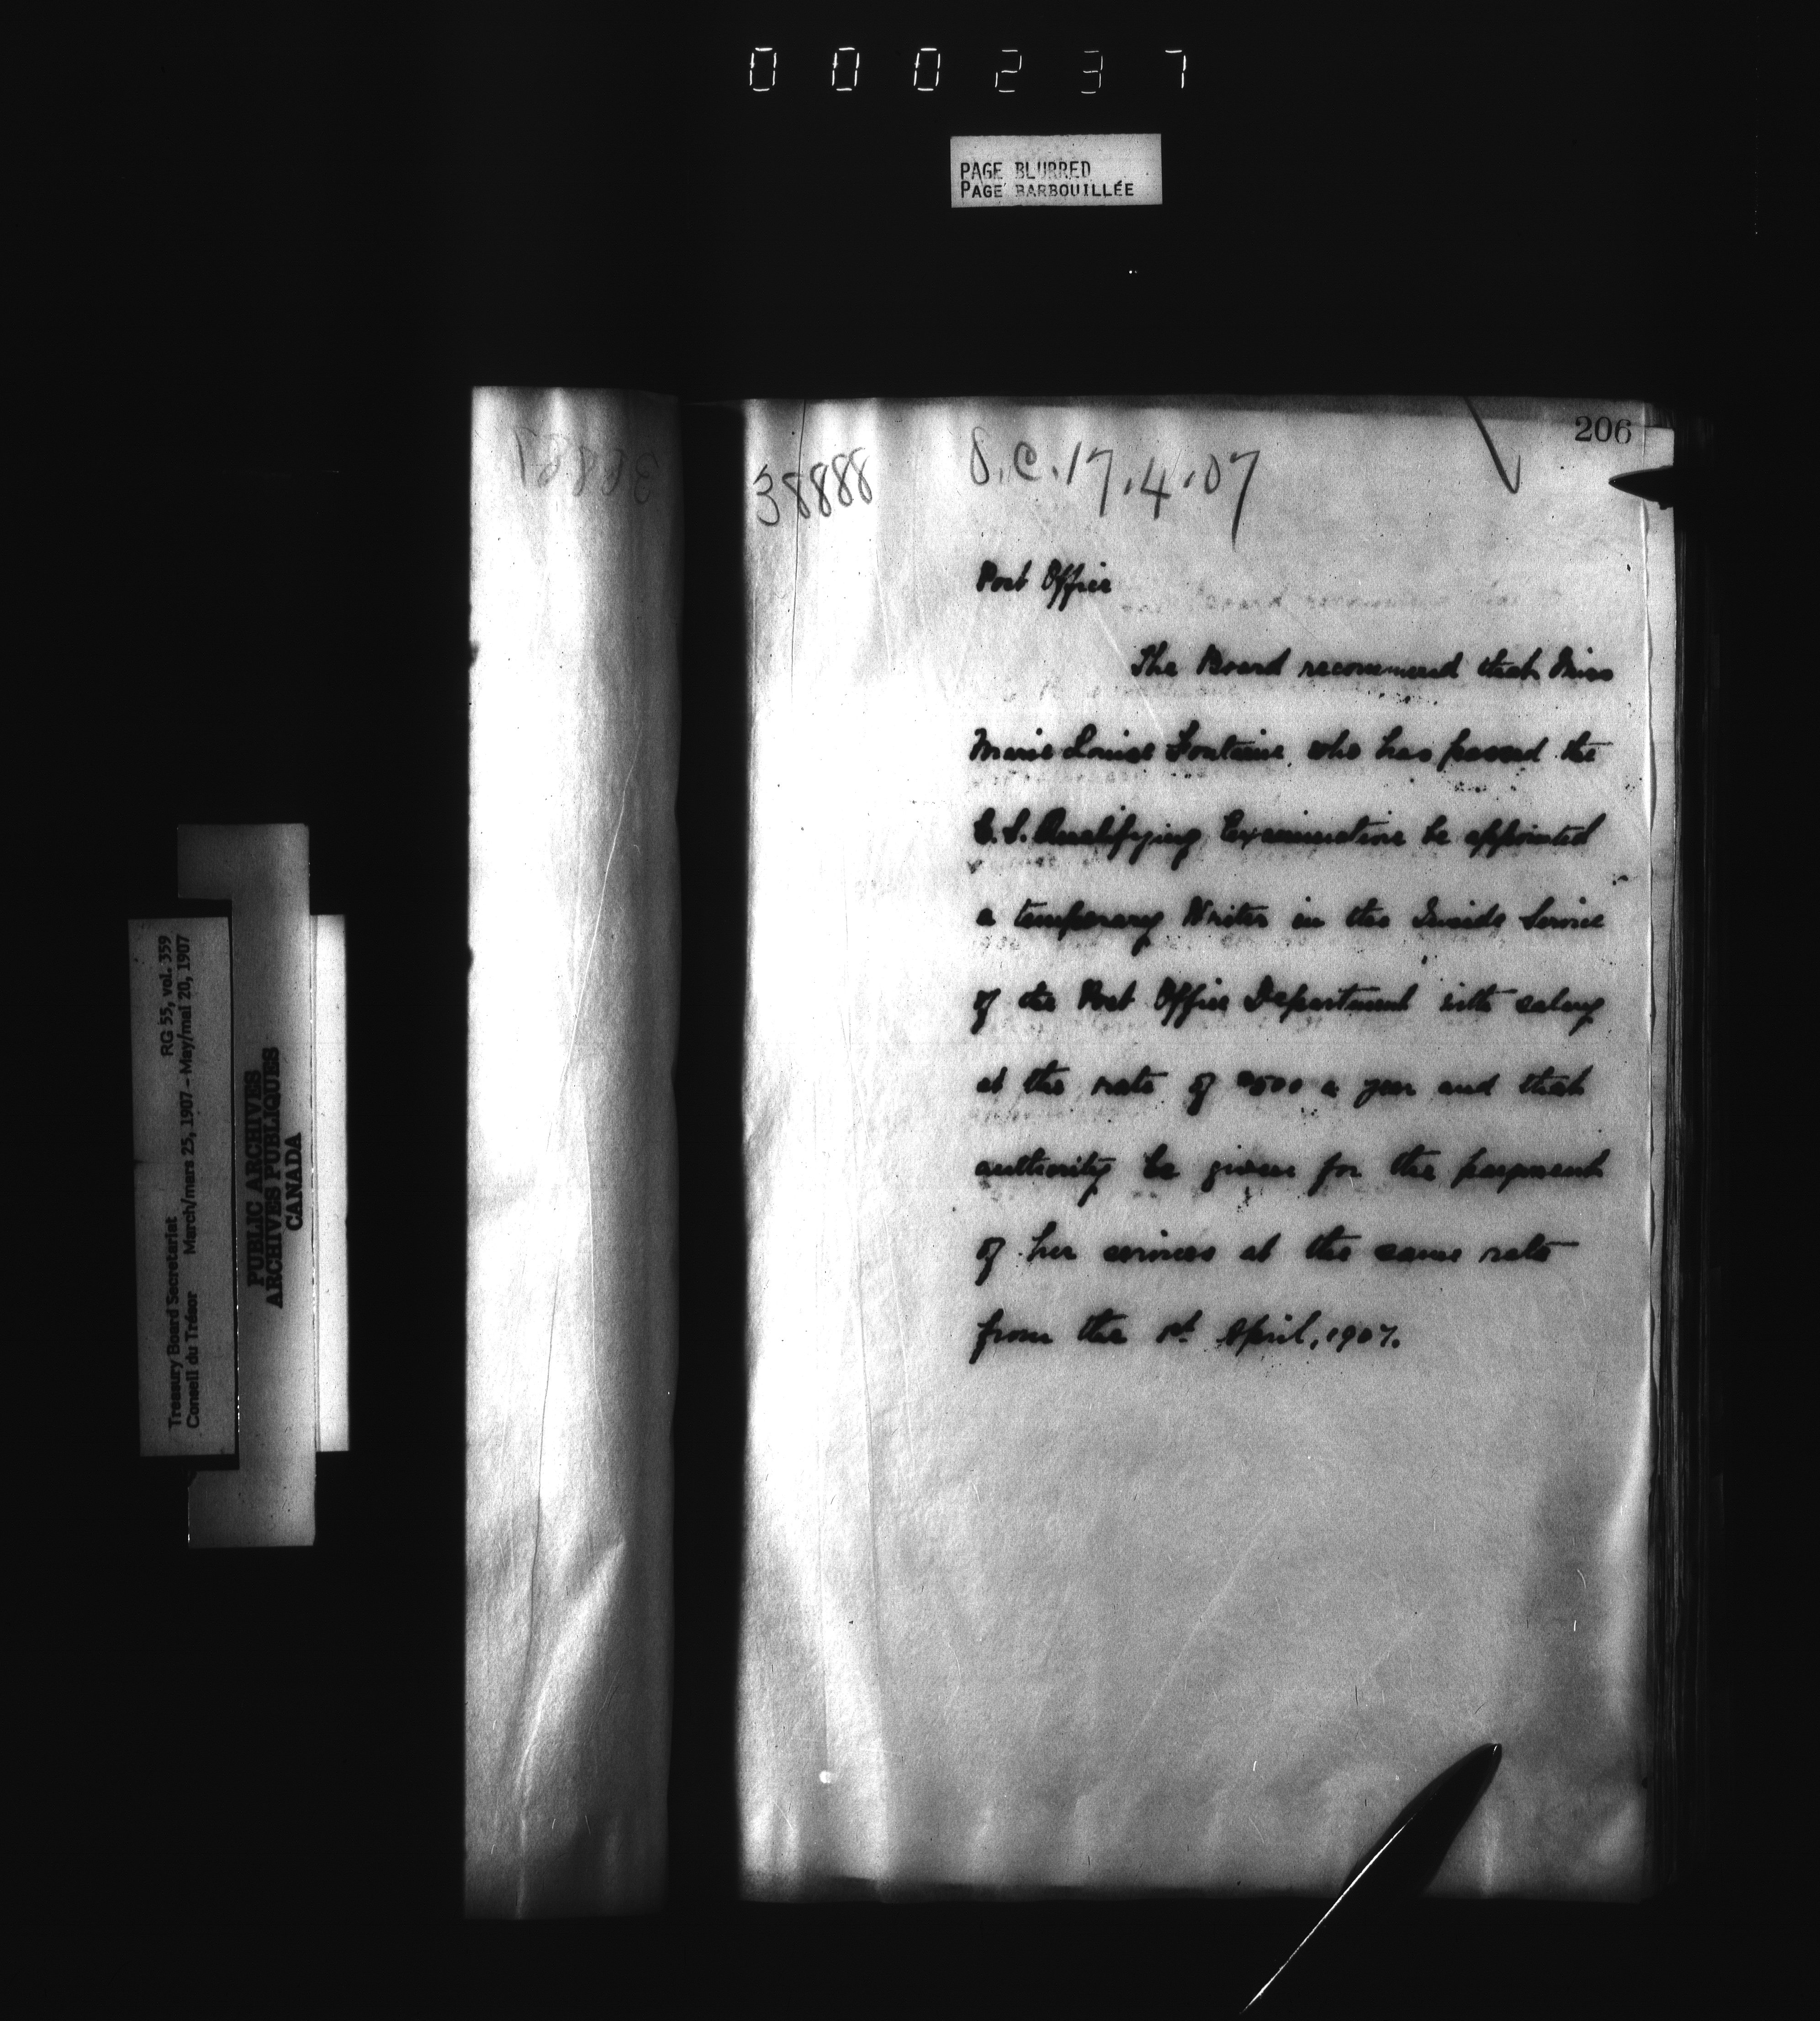 000237
PAGE BLURRED
PAGE BARBOUILLÉE
206
38888
O.C. 17.4.07
Post Office
The Board recommend that Miss
Marie Louise Fontaine who has passed the
C.S. Qualifying Examination be appointed
a temporary Writer in the Inside Service
of the Post Office Department with salary
at the rate of $500 a year and that
authority be given for the payment
of her services at the same rate
from the 1st April, 1907.
Treasury Board Secretariat RG 55, vol. 359
Conseil du Trésor March/mars 25, 1907 - May/mai 20, 1907
PUBLIC ARCHIVES
ARCHIVES PUBLIQUES
CANADA